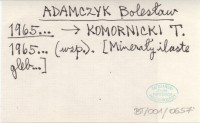 ADAMCZYK Bolesław
1965... → KOMORNICKI T.
1965... (wsp.). [Minerały ilaste
gleb...]